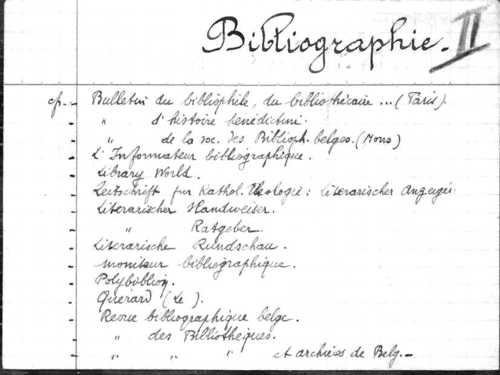 Bibliographie. II
cf. - Bulletin du bibliophile, du bibliothécaire ... (Paris)
- " d'histoire bénédictine.
- " de la soc. des Biblioph. belges. (Mons)
- L'Informateur bibliographique.
- Library World.
- Zeitschrift für Kathol. Theologie: Literarischer Anzeiger
- Literarischer Handweiser.
- " Ratgeber.
- Literarische Rundschau.
- Moniteur bibliographique.
- Polybiblion.
- Quérard (Le).
- Revue bibliographique belge.
- " des Bibliothèques.
- " " " et archives de Belg. -